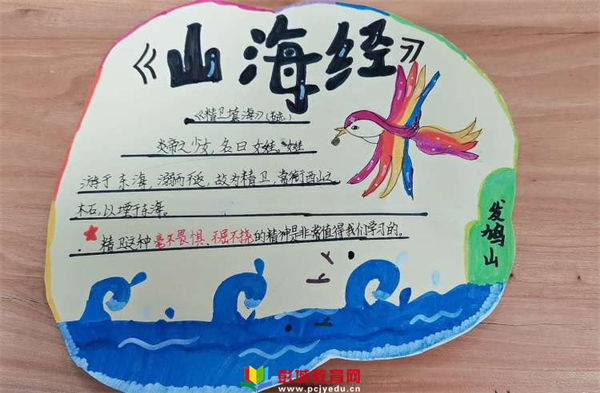 《山海经》
《精卫填海》(节选)
炎帝之少女，名曰女娃。女娃
游于东海，溺而不返，故为精卫，常衔西山之
木石，以堙于东海。
精卫这种毫不畏惧、不屈不挠的精神是非常值得我们学习的。
发鸠山
彭城教育网
www.pcjyedu.cn